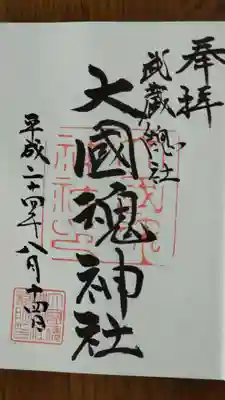 奉拝
武蔵総社
大國魂神社
平成二十四年八月十四日